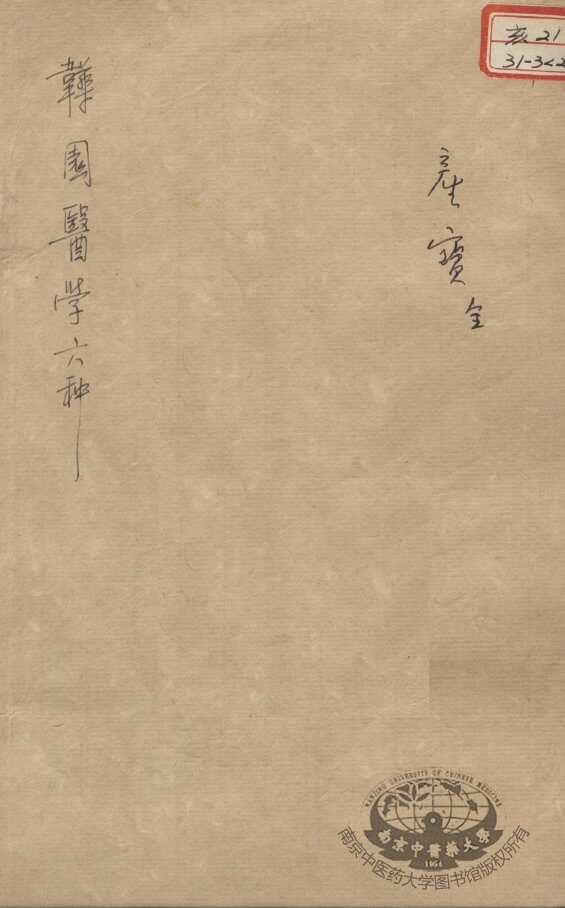 產寶
全
韡園醫学六种
亥21
31-3<2
NANJING UNIVERSITY OF CHINESE MEDICINE
南京中醫藥大學
1954
南京中医药大学图书馆版权所有